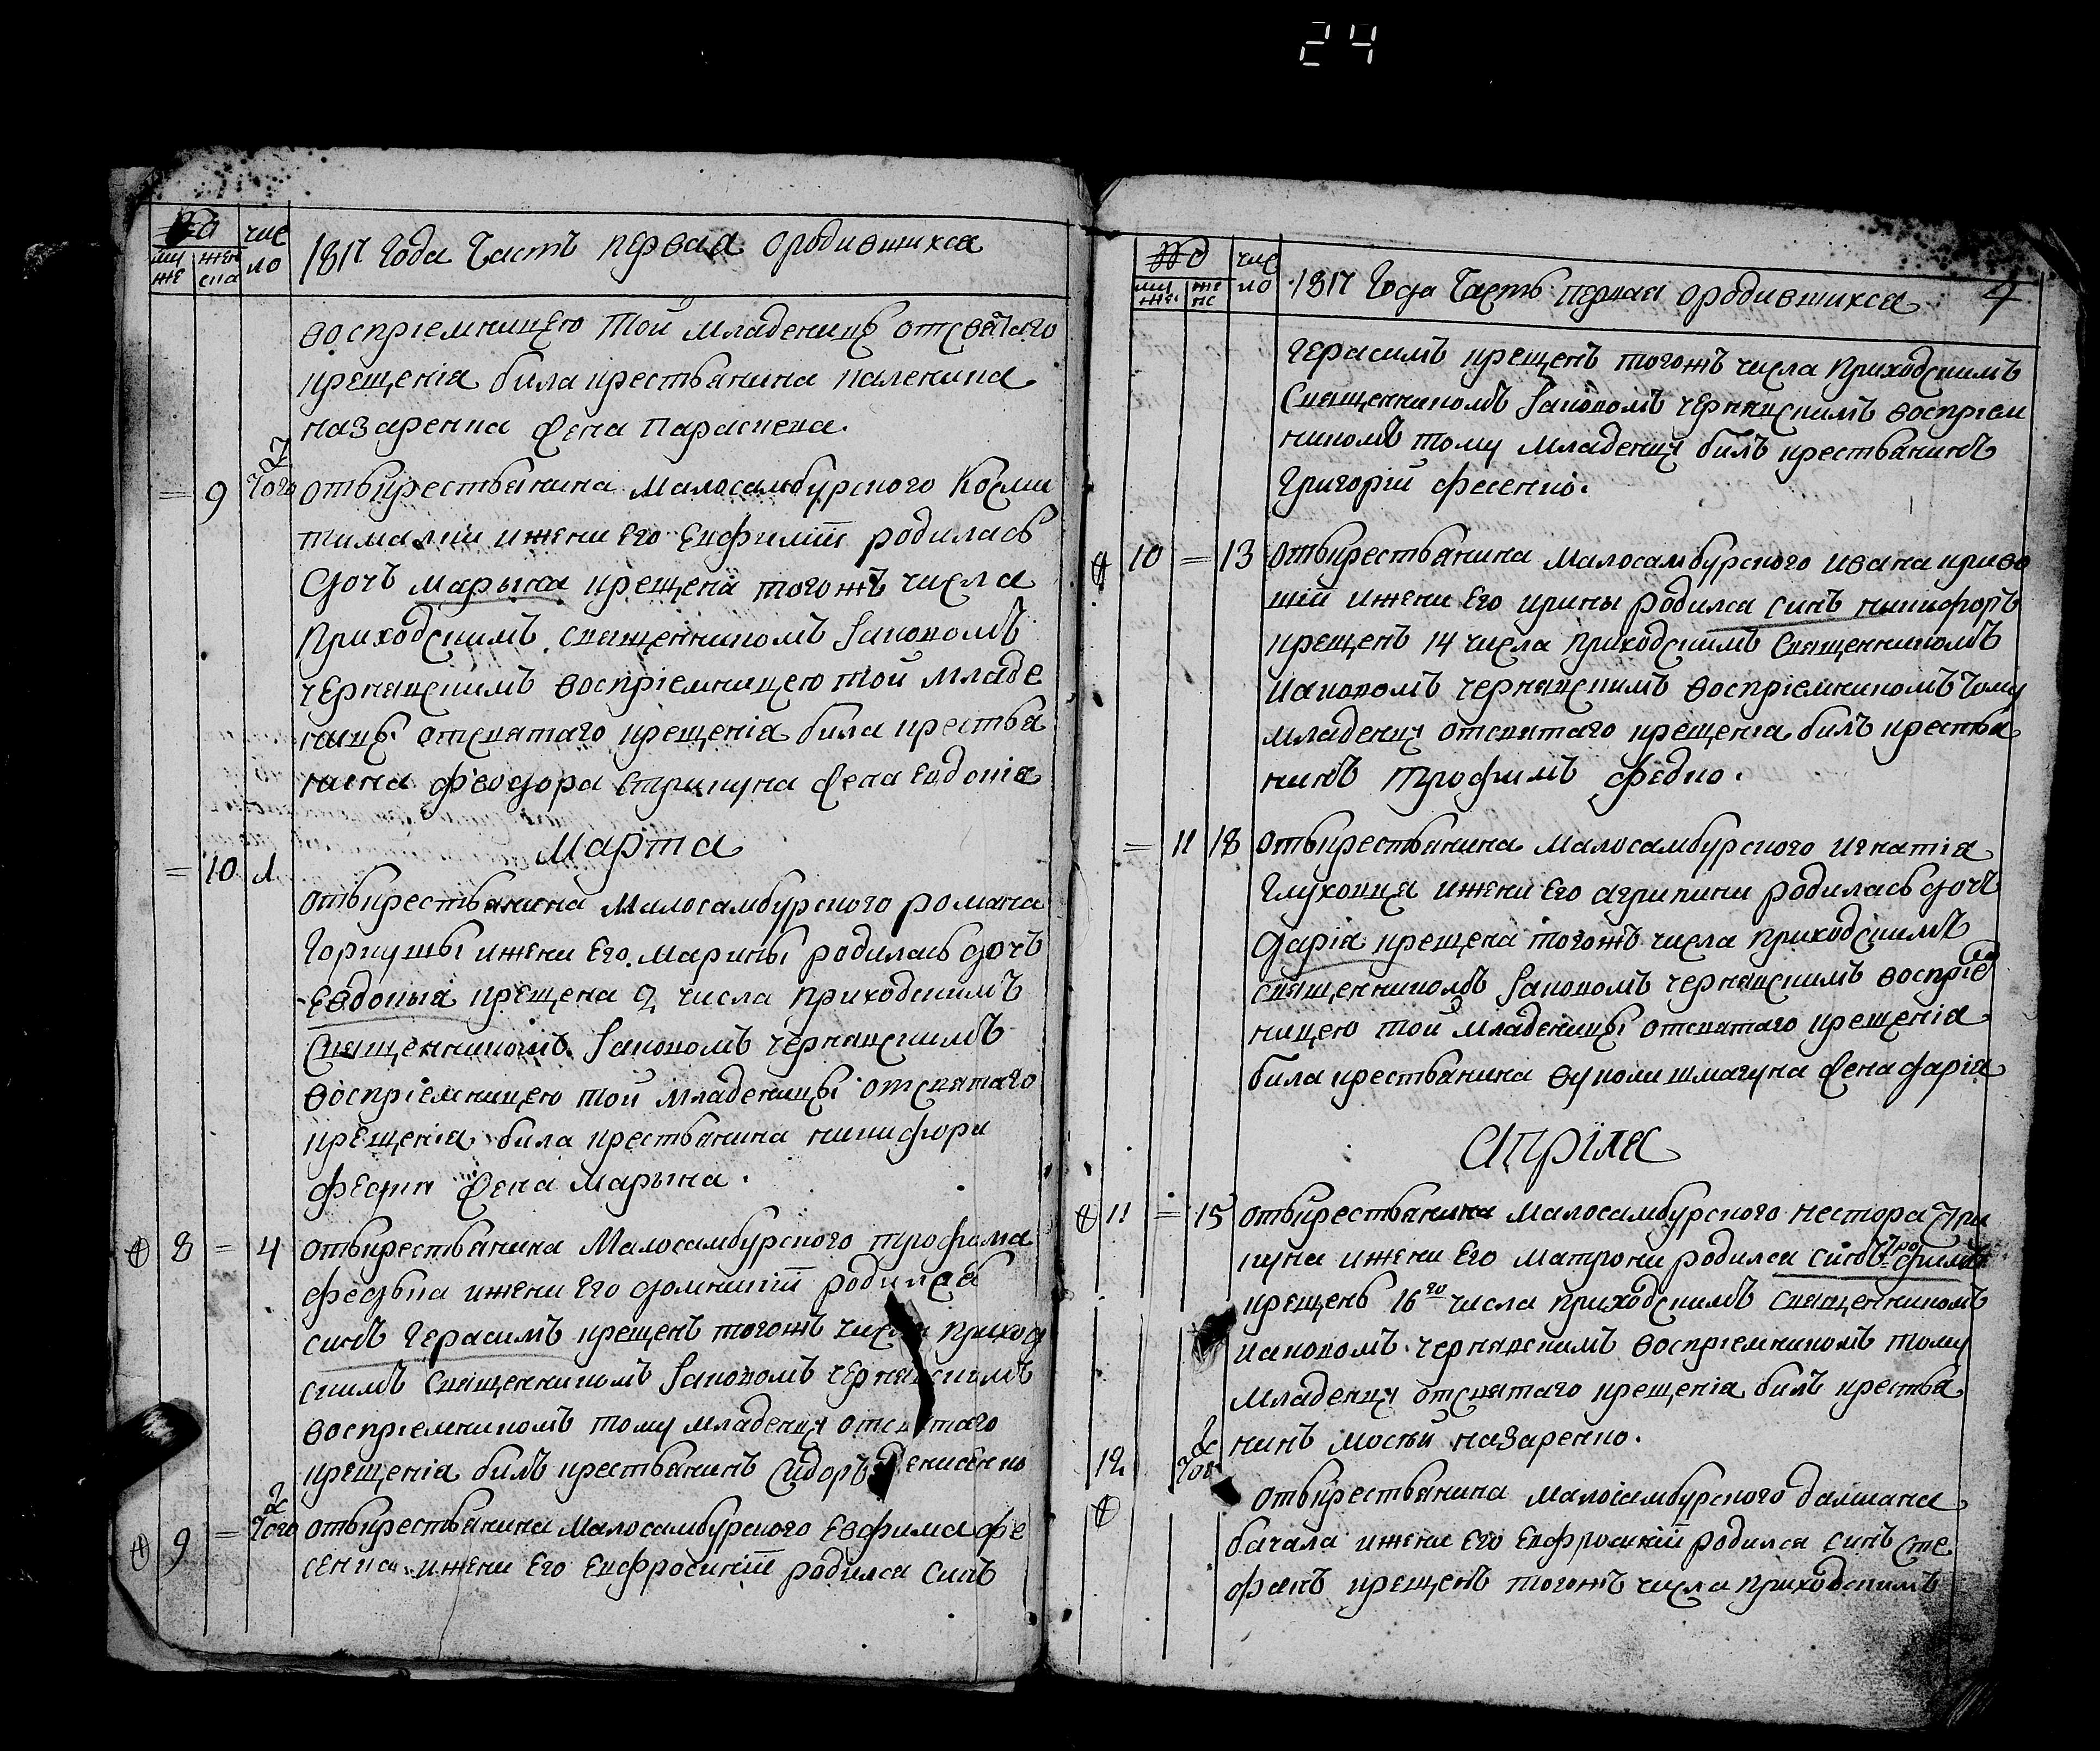 24
№ чис
му же жен ска ло 1817 Года Часть первая ородившихся
воспріемницею той младеницѣ отсвятаго
крещенія била крестьянина каленика
назаренка жена Параскева.
= 9 того ж отъкрестьянина Малосамбурского Косми
ижени Его родилась
дочъ марына крещена тогожъ числа
Приходскимъ священникомъ Іаковомъ
чернявскимъ воспріемницею той Младе
ницѣ отсвятаго крещенія била крестья
нина феодора Стрикуна жена Евдокія
Марта
= 10 1
отъкрестьянина Малосамбурского романа
Горкушы ижени Его Марины родилась дочъ
Евдокыя крещена 2 числа приходскимъ
Священникомъ Іаковомъ чернявскимъ
воспріемницею той младеницы отсвятаго
крещенія била крестьянина никифора
жена Марына.
8 = 4 отъкрестьянина Малосамбурского трофима
федька ижени Его домникіи родился
синъ Герасимъ крещенъ тогожъ числа приход
скимъ священникомъ Іаковомъ чернявскимъ
воспріемникомъ тому младенцу отсвятаго
крещенія билъ крестьянинъ Сидоръ Денисенко
9 = того ж отъкрестьянина Малосамбурского Евфима фе
сенка ижени Его Евфросиніи родился синъ
№ чис
му жес же нс ло 1817 Года Часть первая ородившихся 7
герасимъ крещенъ тогожъ числа Приходскимъ
Священникомъ Іаковомъ чернявскимъ воспріем
никомъ тому Младенцу билъ крестьянинъ
Григорій фесенко.
10 = 13 отъкрестьянина Малосамбурского ивана криво
шіи ижени Его ирины родился синъ никифоръ
крещенъ 14 числа приходскимъ Священникомъ
Иаковомъ чернявскимъ воспріемникомъ тому
младенцу отсвятаго крещенія билъ крестья
нинъ трофимъ федко.
= 11 18 отъкрестьянина Малосамбурского игнатія
Глуховця ижени Его агрипини родилась дочъ
дарія крещена тогожъ числа приходскимъ
священникомъ Іаковомъ чернявскимъ воспріем
ницею той младеницы отсвятаго крещенія
била крестьянина вуколи шмагуна жена дарія
Апріля
11 = 15 отъкрестьянина Малосамбурского нестора Стри
куна ижени Его матрони родился синъ трофимъ
крещенъ 16го числа приходскимъ священникомъ
иаковомъ чернявскимъ воспріемникомъ тому
младенцу отсвятаго крещенія билъ крестья
нинъ мосѣй назаренко.
12 того ж
отъкрестьянина малосамбурского далмана
бачала ижени Его Евфросиніи родился синъ Сте
фанъ крещенъ тогожъ числа приходскимъ